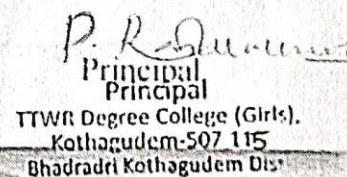 Principal
Principal
TTWR Degree College (Girls),
Kothagudem-507 115
Bhadradri Kothagudem Dis